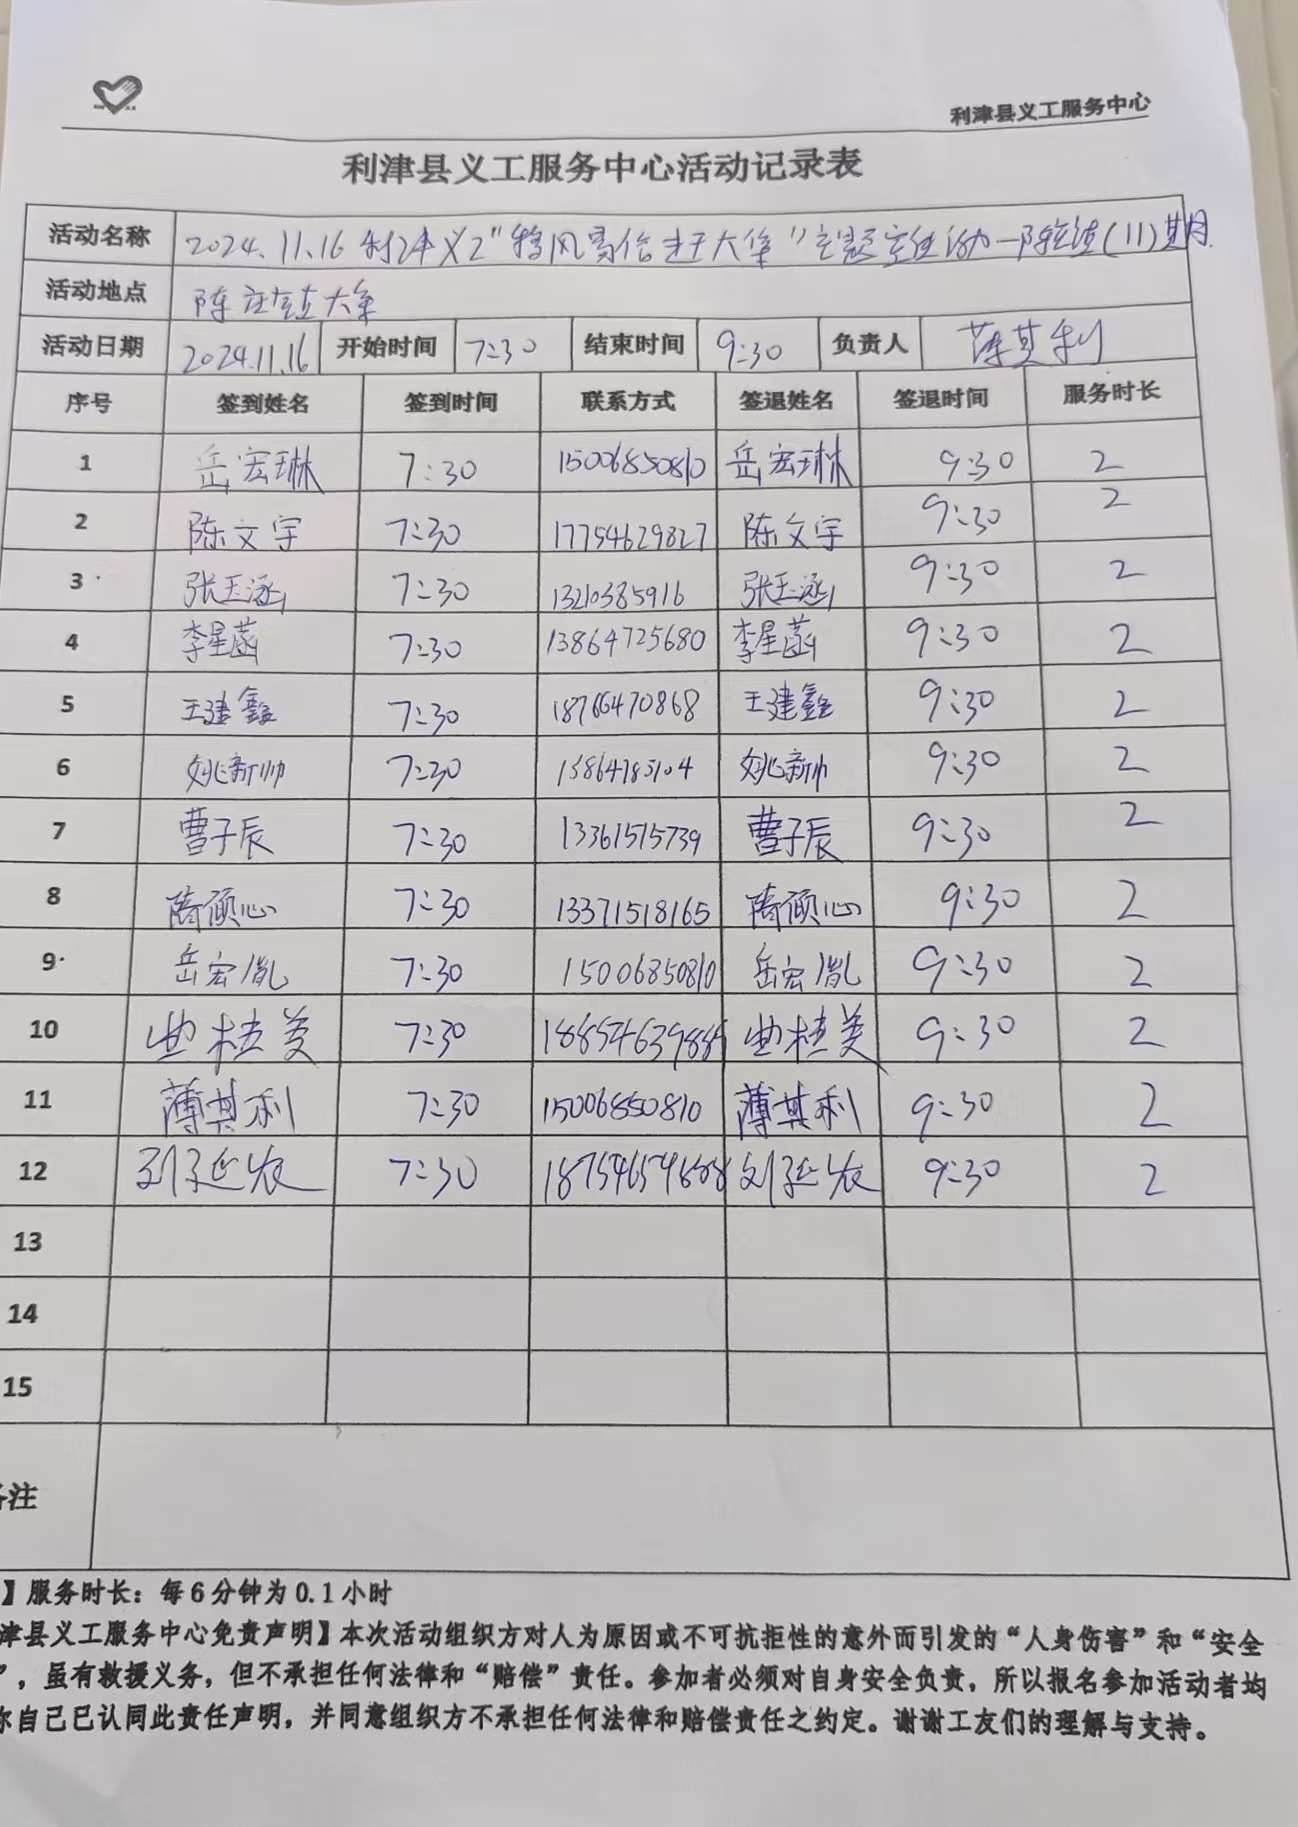 利津县义工服务中心
利津县义工服务中心活动记录表
活动名称 2024.11.16 利津义工" 进大集"主题宣传活动—陈庄镇(11)期
活动地点 陈庄镇大集
活动日期 2024.11.16 开始时间 7:30 结束时间 9:30 负责人 薄其利
序号 签到姓名 签到时间 联系方式 签退姓名 签退时间 服务时长
1 岳宏琳 7:30 15006850810 岳宏琳 9:30 2
2 陈文宇 7:30 17754629827 陈文宇 9:30 2
3 张玉涵 7:30 13210385916 张玉涵 9:30 2
4 李星菡 7:30 13864725680 李星菡 9:30 2
5 王建鑫 7:30 18766470868 王建鑫 9:30 2
6 姚新帅 7:30 15864785104 姚新帅 9:30 2
7 曹子辰 7:30 13361515739 曹子辰 9:30 2
8 隋颀心 7:30 13371518165 隋颀心 9:30 2
9 岳宏胤 7:30 15006850810 岳宏胤 9:30 2
10 曲桂美 7:30 曲桂美 9:30 2
11 薄其利 7:30 15006850810 薄其利 9:30 2
12 刘延农 7:30 刘延农 9:30 2
13
14
15
注
】服务时长：每6分钟为0.1小时
津县义工服务中心免责声明】本次活动组织方对人为原因或不可抗拒性的意外而引发的“人身伤害”和“安全
”，虽有救援义务，但不承担任何法律和“赔偿”责任。参加者必须对自身安全负责，所以报名参加活动者均
你自己已认同此责任声明，并同意组织方不承担任何法律和赔偿责任之约定。谢谢工友们的理解与支持。